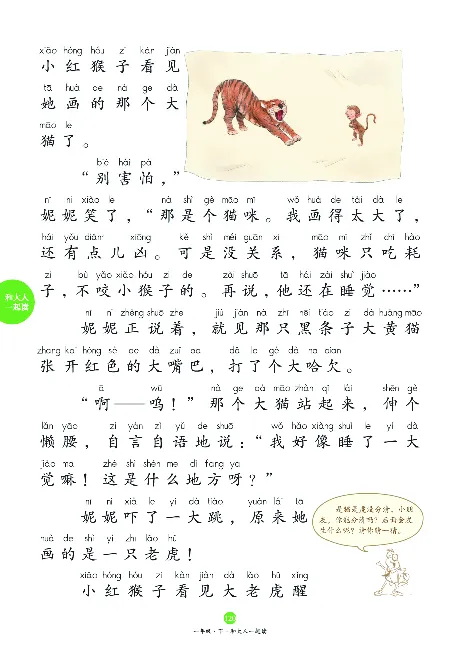 xiǎo hóng hóu zi kàn jiàn
小红猴子看见
tā huà de nà gè dà
她画的那个大
māo le
猫了。
bié hài pà
“别害怕，”
nī ni xiào le nà shì gè māo mī wǒ huà de tài dà le
妮妮笑了，“那是个猫咪。我画得太大了，
hái yǒu diǎn xiōng kě shì méi guān xi māo mī zhǐ chī hào
还有点儿凶。可是没关系，猫咪只吃耗
zi bù yǎo xiǎo hóu zi de zài shuō tā hái zài shuì jiào
子，不咬小猴子的。再说，他还在睡觉……”
nī ni zhèng shuō zhe jiù jiàn nà zhī hēi tiáo zi dà huáng māo
妮妮正说着，就见那只黑条子大黄猫
zhāng kāi hóng sè de dà zuǐ ba dǎ le gè dà hā qian
张开红色的大嘴巴，打了个大哈欠。
ā wū nà ge dà māo zhàn qǐ lái shēn gè
“啊——呜！”那个大猫站起来，伸个
lǎn yāo zì yán zì yǔ de shuō wǒ hǎo xiàng shuì le yí dà
懒腰，自言自语地说：“我好像睡了一大
jiào ma zhè shì shén me dì fang ya
觉嘛！这是什么地方呀？”
nī ni xià le yí dà tiào yuán lái tā
妮妮吓了一大跳，原来她
huà de shì yì zhī lǎo hǔ
画的是一只老虎！
xiǎo hóng hóu zi kàn jiàn dà lǎo hǔ xǐng
小红猴子看见大老虎醒
和大人
一起读
是猫是虎没分清，小朋
友，你能分清吗？后面会发
生什么呢？请你猜一猜。
120
一年级·下·和大人一起读